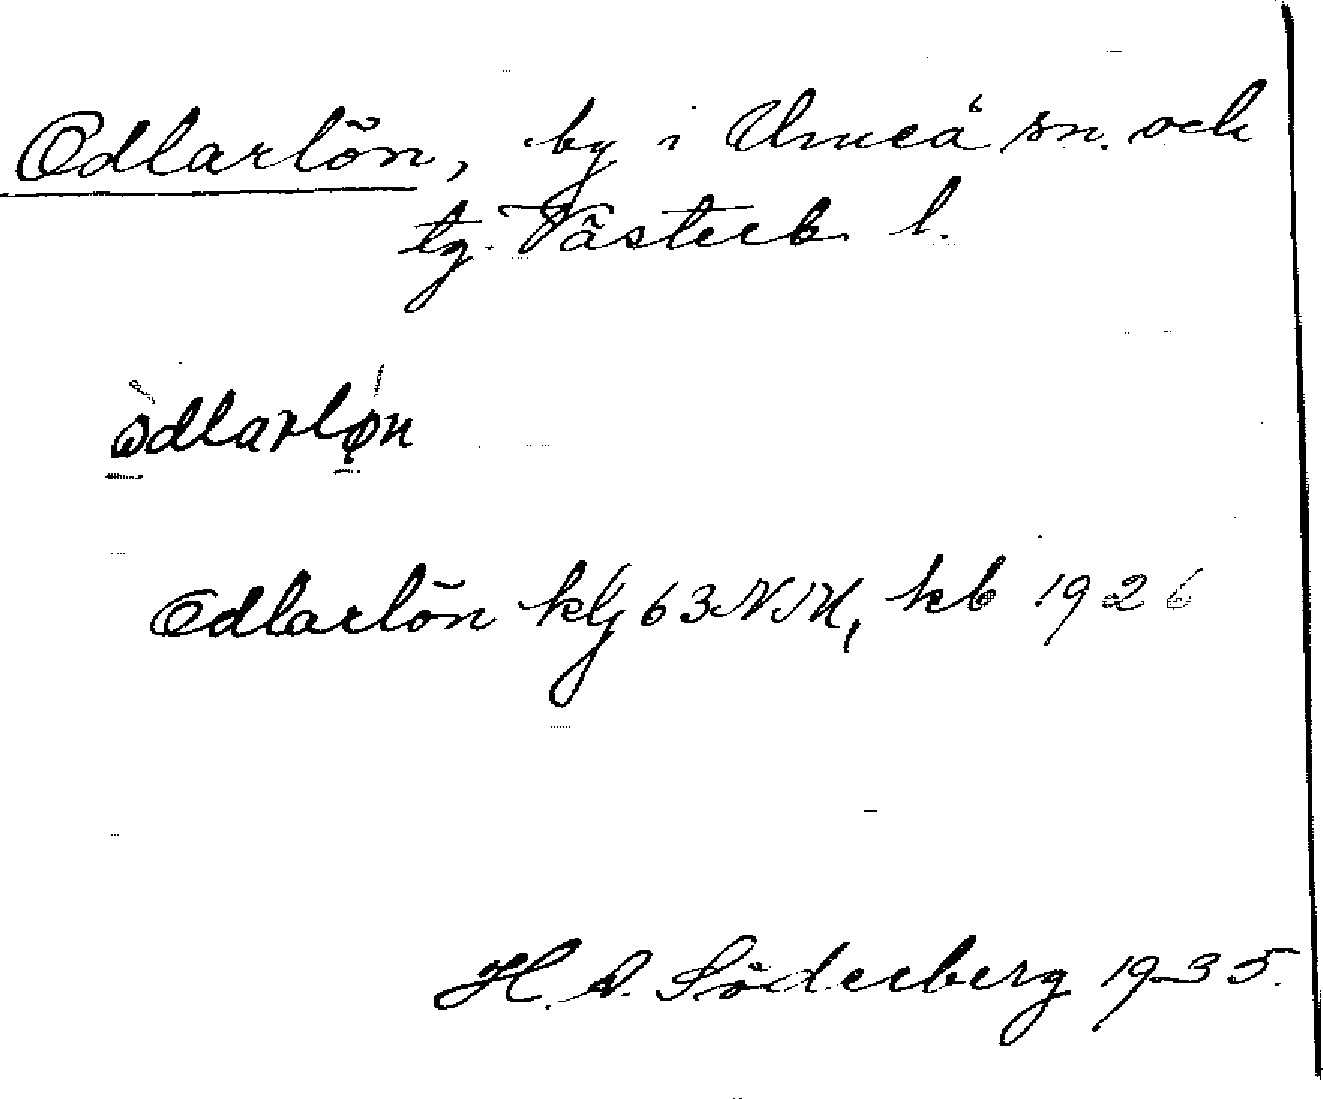 Odlarlön, by i Umeå sn. och
tg. Västerb. l.
òdlarløn
Odlarlön klj 63 NM, kb 1926
H. A. Söderberg 1935.